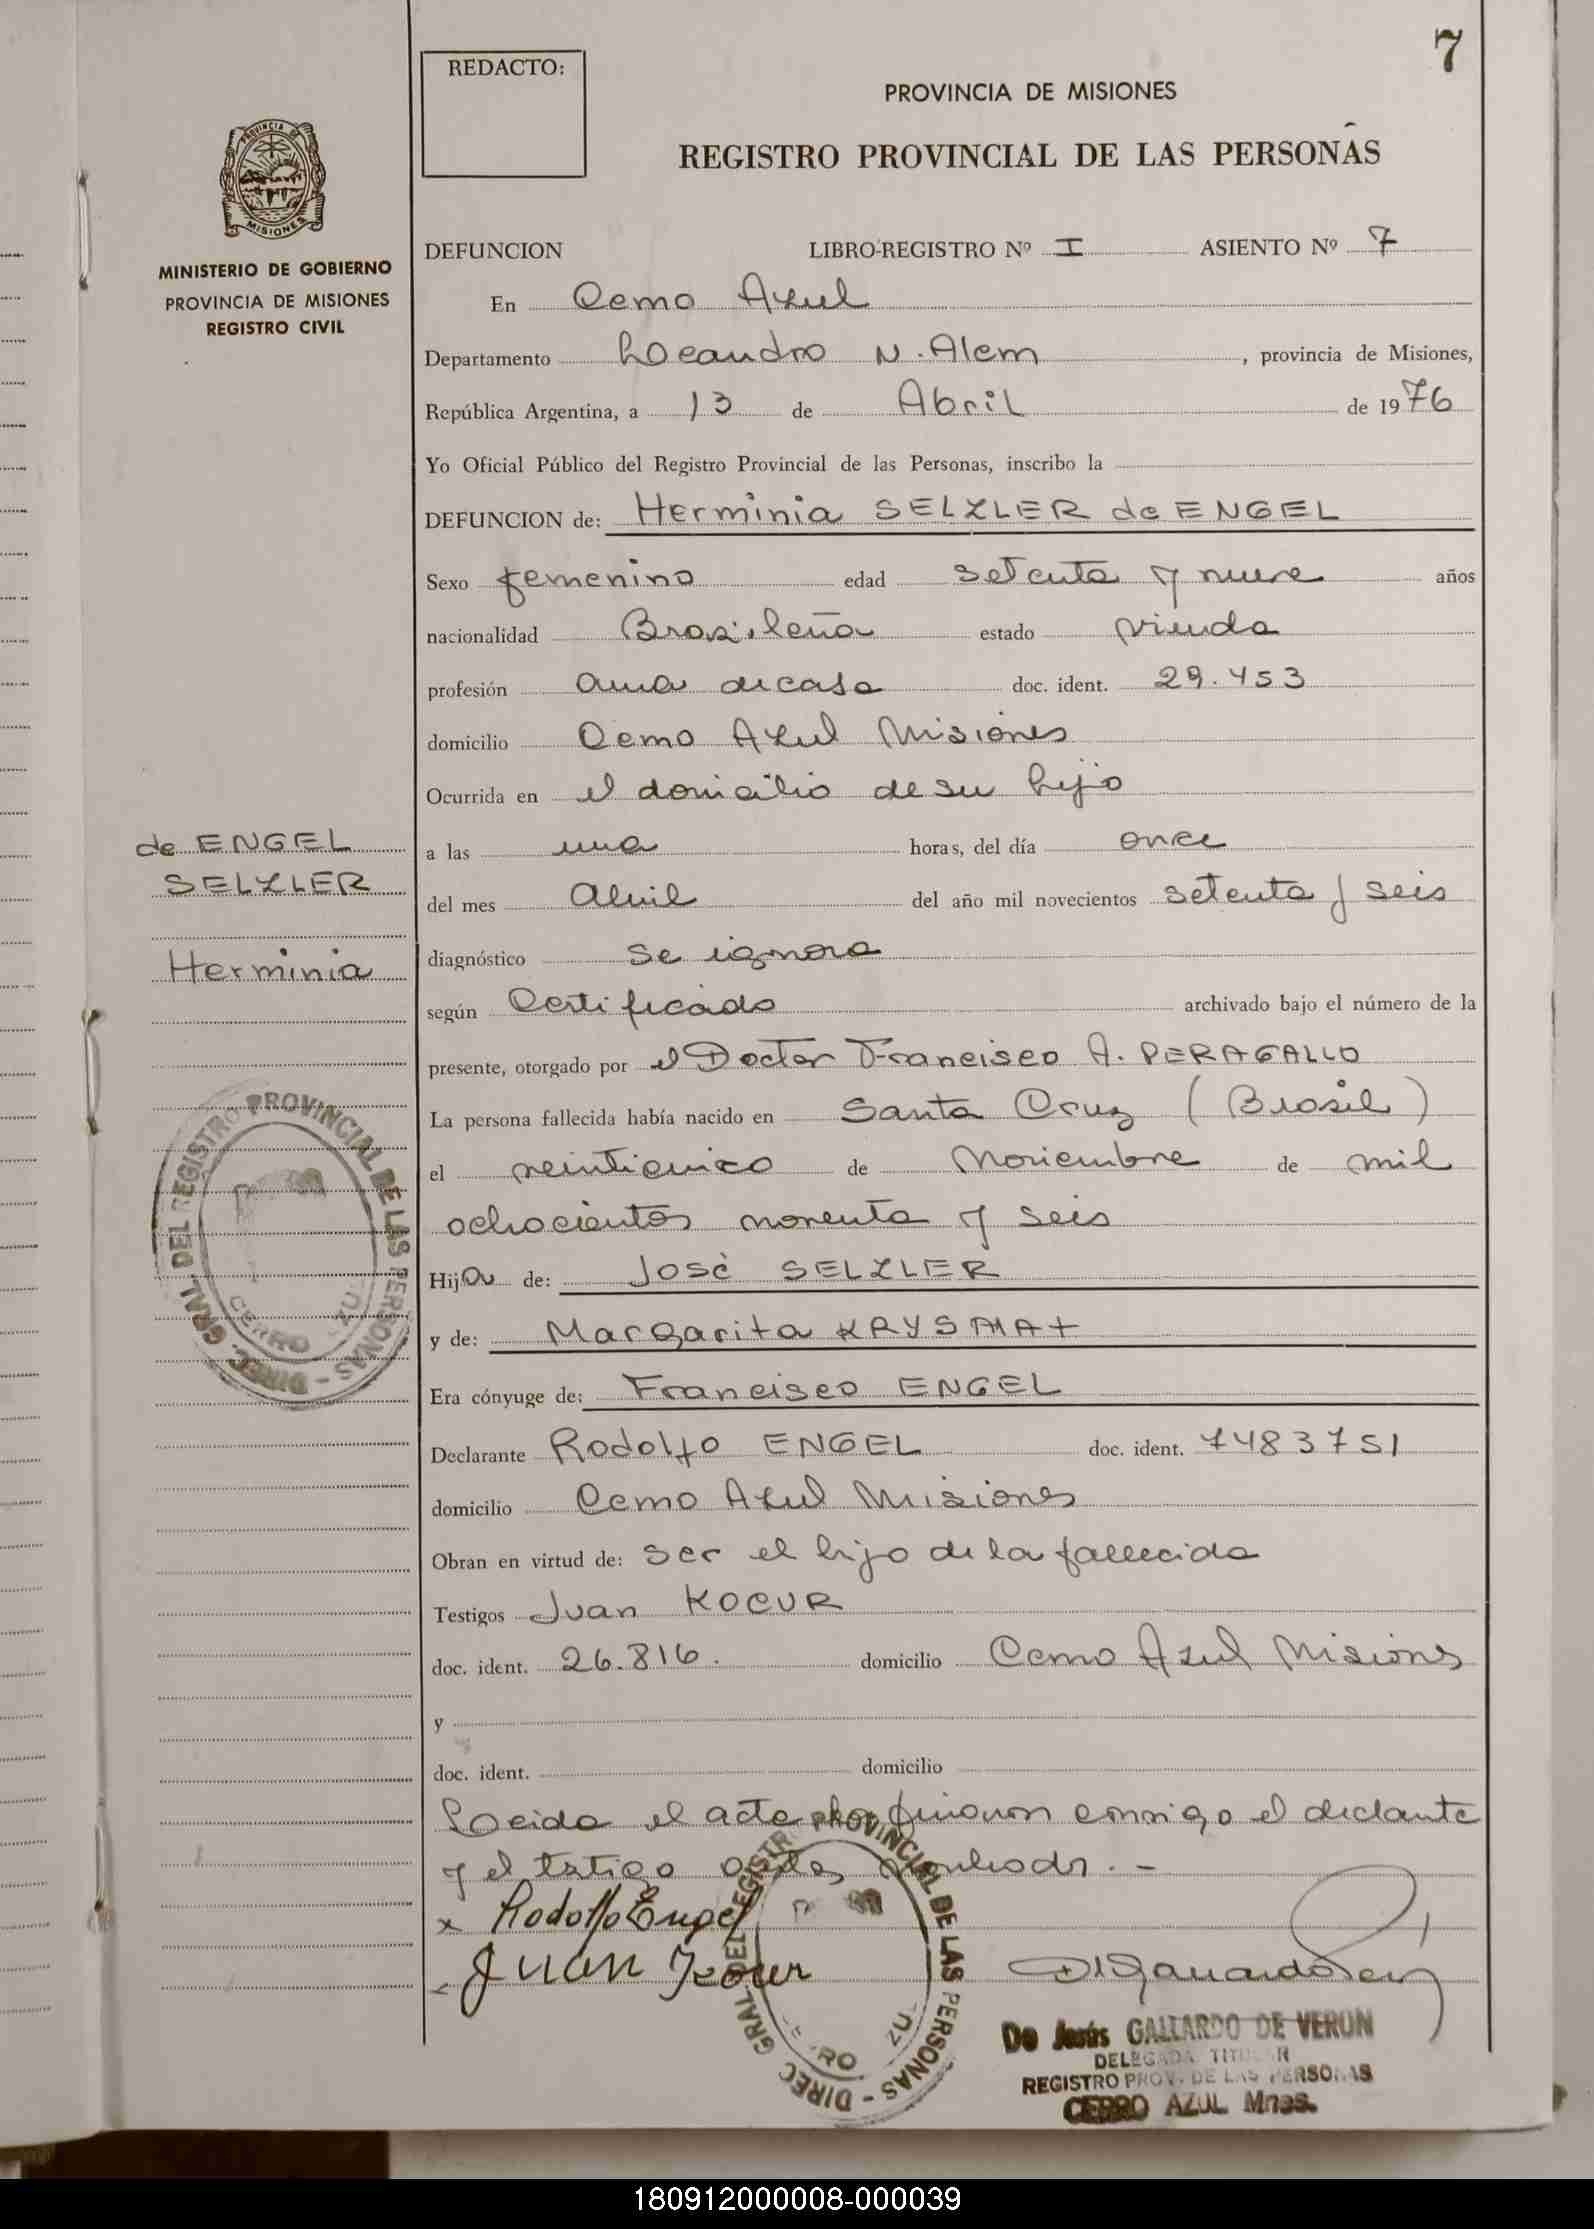 7
REDACTO:
PROVINCIA DE MISIONES
REGISTRO PROVINCIAL DE LAS PERSONAS
PROVINCIA DE
MISIONES
MINISTERIO DE GOBIERNO
PROVINCIA DE MISIONES
REGISTRO CIVIL
DEFUNCION LIBRO-REGISTRO Nº I ASIENTO Nº 7
En Cerro Azul
Departamento Leandro N. Alem, provincia de Misiones,
República Argentina, a 13 de Abril de 1976
Yo Oficial Público del Registro Provincial de las Personas, inscribo la
DEFUNCION de: Herminia SELZLER de ENGEL
Sexo femenino edad setenta y nueve años
nacionalidad Brasileña estado viuda
profesión ama de casa doc. ident. 29.453
domicilio Cerro Azul Misiones
Ocurrida en el domicilio de su hijo
a las una horas, del día once
del mes Abril del año mil novecientos setenta y seis
diagnóstico se ignora
según Certificado archivado bajo el número de la
presente, otorgado por el Doctor Francisco A. PERAGALLO
La persona fallecida había nacido en Santa Cruz (Brasil)
el veinticinco de Noviembre de mil
ochocientos noventa y seis
Hija de: José SELZLER
y de: Margarita KRYSMAT
Era cónyuge de: Francisco ENGEL
Declarante Rodolfo ENGEL doc. ident. 7483751
domicilio Cerro Azul Misiones
Obran en virtud de: ser el hijo de la fallecida
Testigos Juan KOCUR
doc. ident. 26.816. domicilio Cerro Azul Misiones
y
doc. ident. domicilio
Leida el acta firmaron conmigo el declante
y el testigo antes nombrado. -
x Rodolfo Engel
Juan Kocur
de ENGEL
SELZLER
Herminia
DIREC. GRAL. DEL REGISTRO PROVINCIAL DE LAS PERSONAS -
CERRO ZU
DIREC. GRAL. DEL REGISTRO PROVINCIAL DE LAS PERSONAS -
RO ZU
De Jesús GALLARDO DE VERON
DELEGADA TITULAR
REGISTRO PROV. DE LAS PERSONAS
CERRO AZUL Mnes.
180912000008-000039